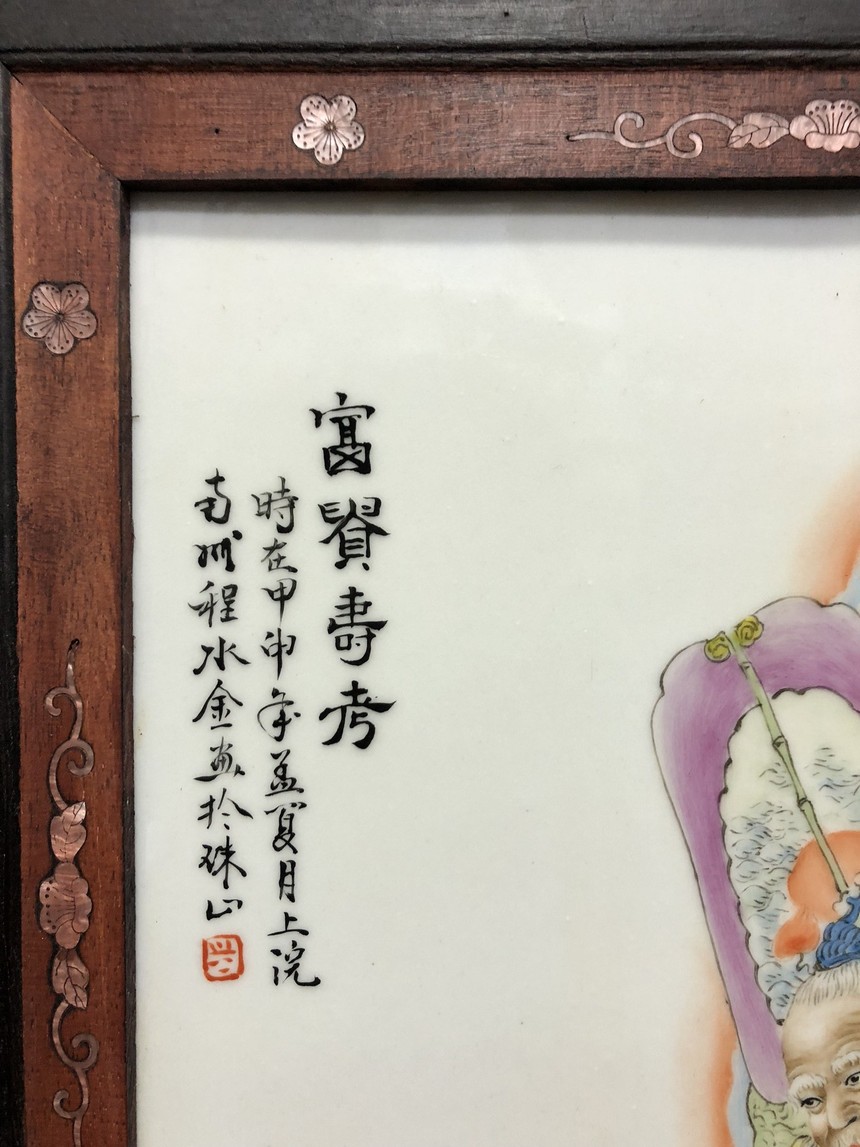 富貴壽考
時在甲申年孟夏月上浣
南州程水金画於珠山